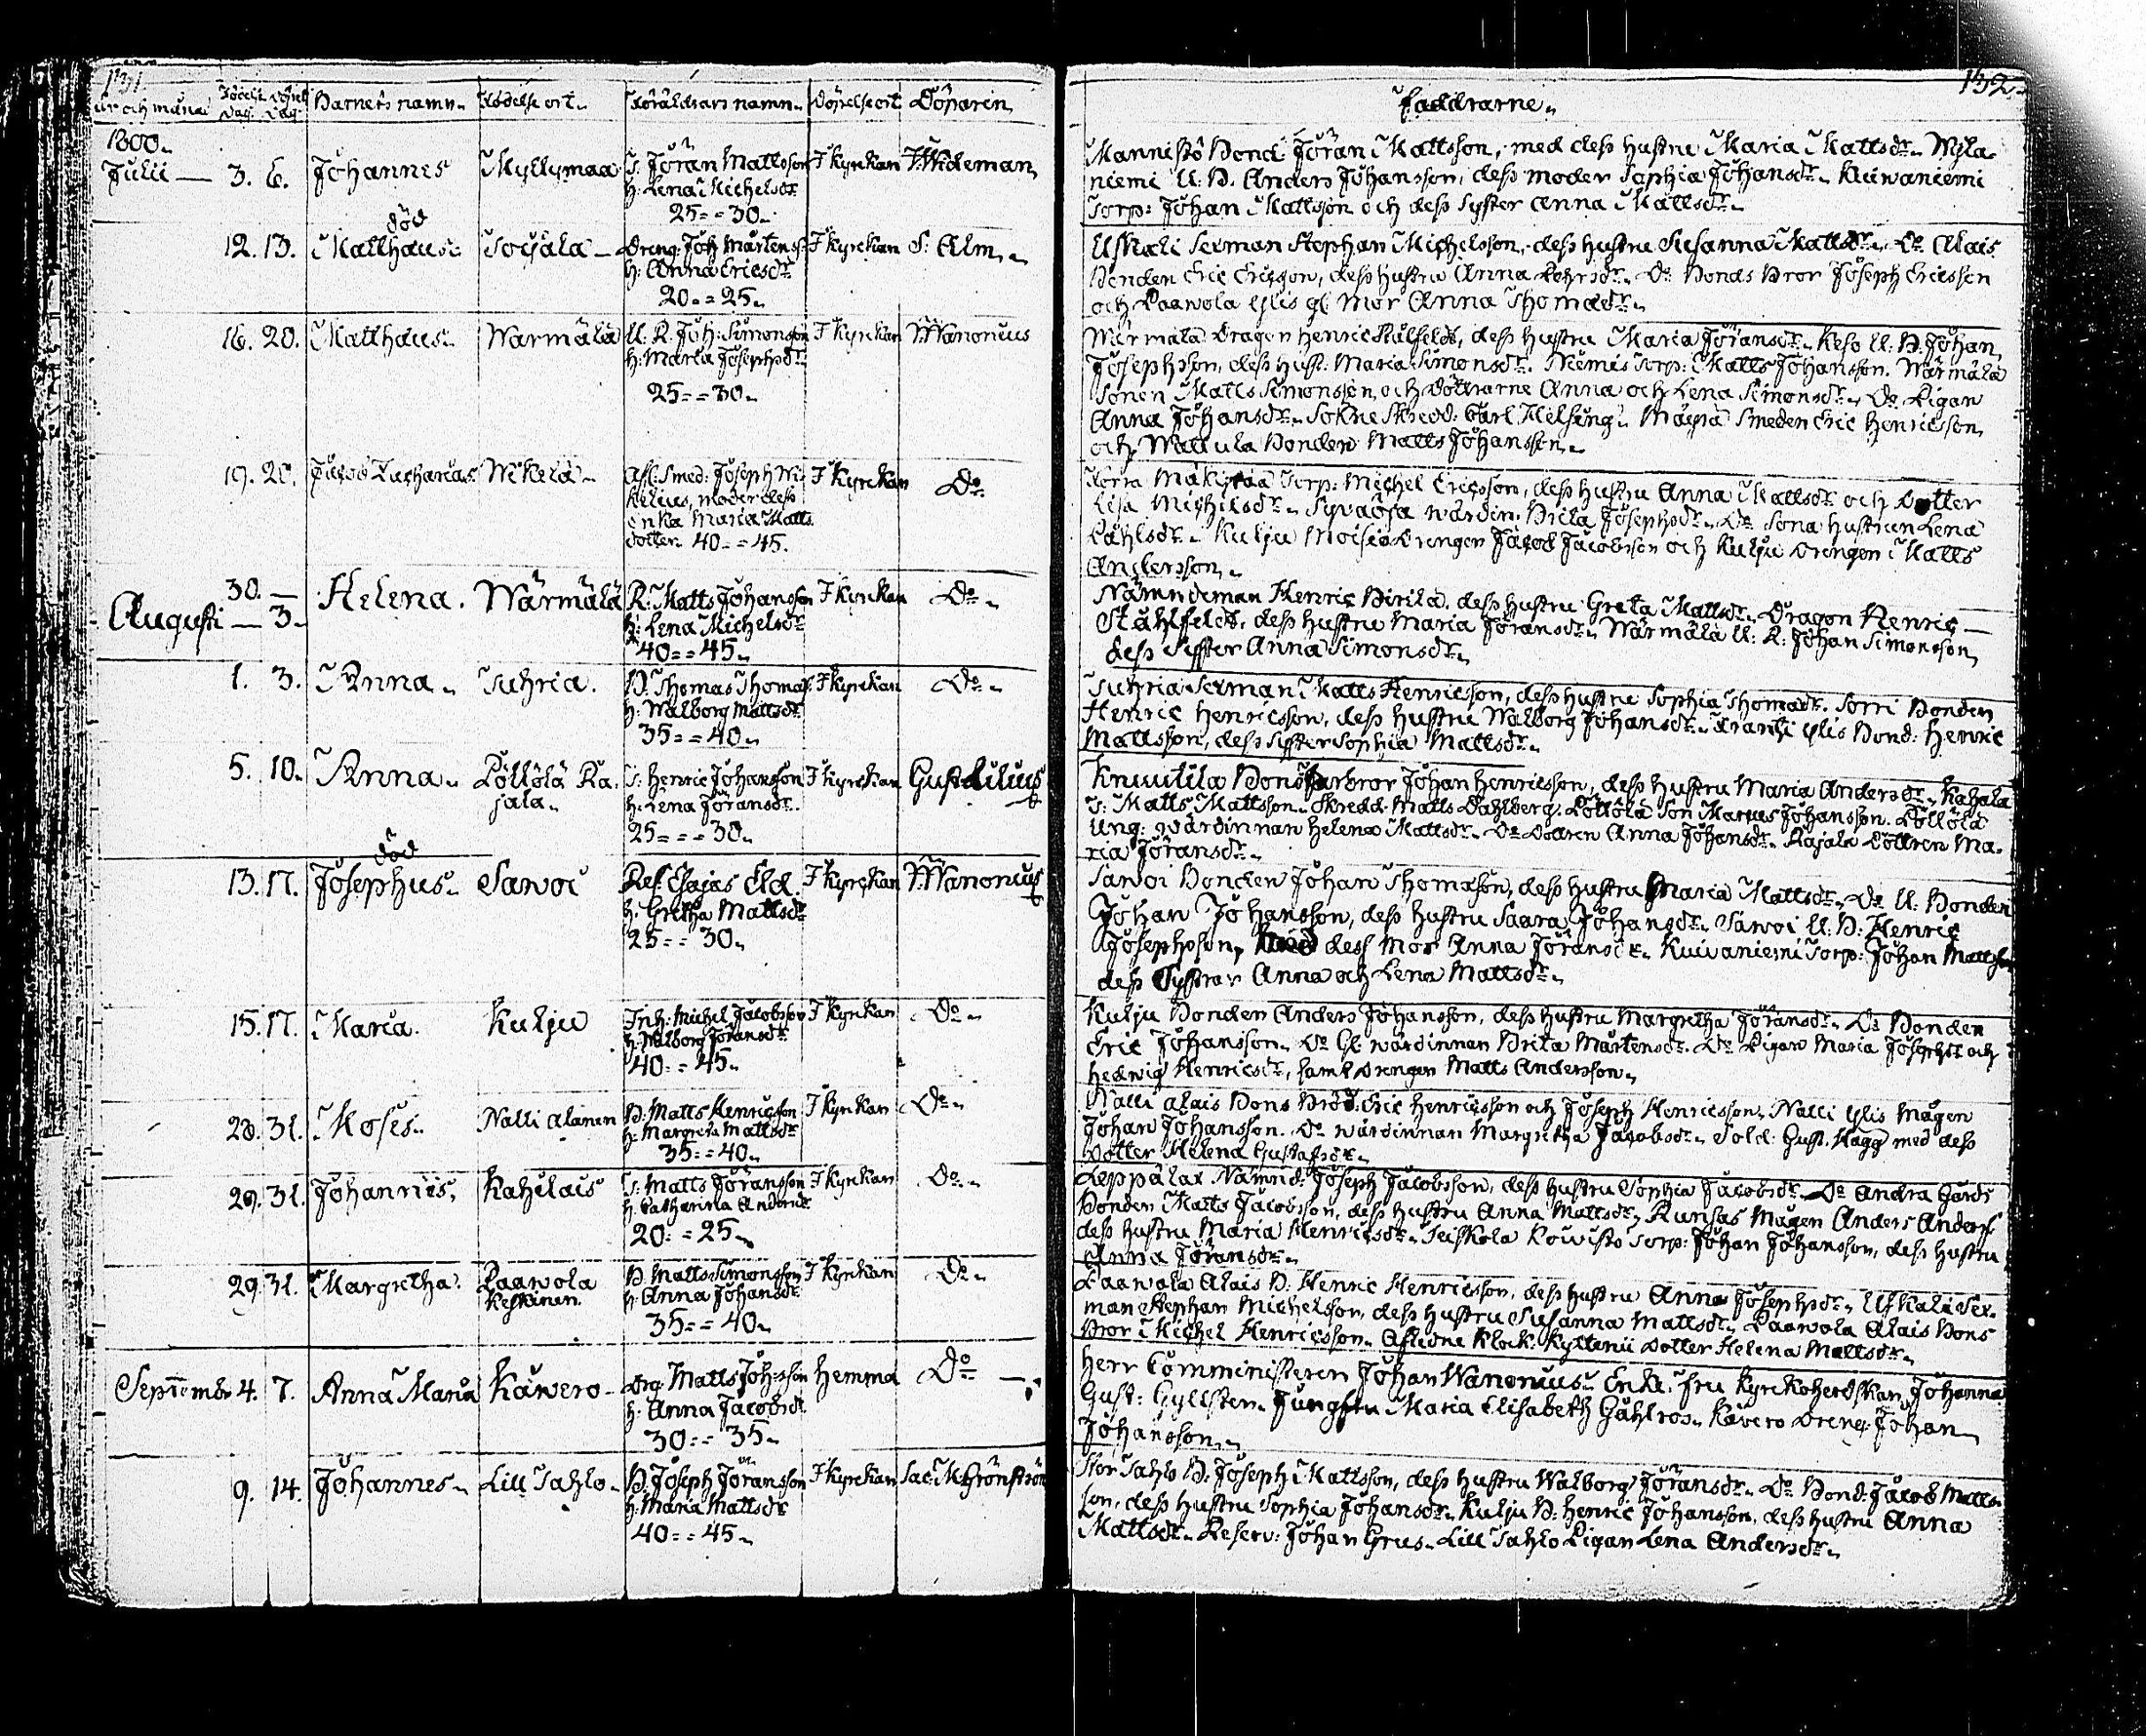 131.
152.
år och månad Födelse Dag. Döpelse Dag Barnets namn Födelse ort. Föräldrars namn. Döpelse ort Döparen
Faddrarne.
1800.
Julii — 3. 6. Johannes Myllymaa T: Jöran Mattsson I kyrkan J. Wideman
H: Lena Michelsdr
25 = = 30.
Mannistö Bond: Jöran Mattsson, med dess hustru Maria Mattsdr.
niemi U: B. Anders Johansson, dess moder Sophia Johansdr. Kuivaniemi
Torp: Johan Mattsson och dess syster Anna Mattsdr.
död
12. 13. Matthaus Soijala Dreng: Joh Mårtenss. I kyrkan S: Alm.
H: Anna Ericsdr
20 = = 25.
Uskali Sexman Stephan Michelsson, dess hustru Susanna Mattsdr. Do Alais
Bonden Eric Ericsson, dess hustru Anna Do Bonds Bror Joseph Ericsson
och Paawola Ylis gl: Mor Anna Thomasdr.
16. 20. Matthaus Warmälä U: R. Joh: Simonsson I kyrkan J. Wanonius
H: Maria Josephsdr
25 = = 30.
Wärmälä Dragon Henric Stålfelt, dess hustru Maria Jöransdr. Keso U: B. Johan
Josephsson, dess hust: Maria Simonsdr. Niemis Torp: Matts Johansson. Wärmälä
Sonen Matts Simonsson och döttrarne Anna och Lena Simonsdr. Do Pigan
Anna Johansdr. Sokne Skredd: Carl Helsing. Mäyrä Smeden Eric Henricsson
och Wallula Bonden Matts Johansson.
19. 20. Jacob Zacharias Wikelä Afl: Smed: Joseph Wi- I kyrkan Do
kelius, moder dess
Enka Maria Matts
dotter. 40 = = 45.
Torp: Michel Ericsson, dess hustru Anna Mattsdr och dotter
Lisa Michelsdr. wärdin: Brita Josephsdr. Do Sona hustrun Lena
Påhlsdr. Kulju Moisio Drengen Jacob Jacobsson och Kulju drengen Matts
Andersson.
30. —
Augusti — 3. Helena. Wärmälä R: Matts Johansson I kyrkan Do
H: Lena Michelsdr
40 = = 45.
Nämndeman Henric Pirilä dess hustru Greta Mattsdr. Dragon Henric
Stålfelt, dess hustru Maria Jöransdr. Wärmälä U: R: Johan Simonsson
dess Syster Anna Simonsdr.
1. 3. Anna. Tuhria. B. Thomas Thomass: I kyrkan Do
H: Walborg Mattsdr
35 = = 40.
Tuhria Sexman Matts Henricsson, dess hustru Sophia Thomasdr. Sorri Bonden
Henric Henricsson, dess hustru Walborg Johansdr. Frantsi Ylis Bond: Henric
Mattsson, dess Syster Sophia Mattsdr.
5. 10. Anna. Pöllölä Ra- T: Henric Johansson I kyrkan Gust Lilius
jala. H: Lena Jöransdr.
25 = = 30.
Knuutila Bonds farbror Johan Henricsson, dess hustru Maria Andersdr. Kahala
T: Matts Mattsson. Skredd: Matts Dahlberg. Pöllölä Son Marcus Johansson. Pöllölä
Ung: wärdinnan Helena Mattsdr. Do Dottren Anna Johansdr. Rajala Dottren Ma-
ria Jöransdr.
död
13. 17. Josephus. Sawoi Res. Esajas Eld I kyrkan J. Wanonius
H: Gretha Mattsdr
25 = = 30.
Sawoi Bonden Johan Thomasson, dess hustru Maria Mattsdr. Do U: Bonden
Johan Johansson, dess hustru Saara Johansdr. Sawoi U: B: Henric
Josephsson, med dess mor Anna Jöransdr. Kuivaniemi Torp: Johan Mattss
dess Systrar Anna och Lena Mattsdr.
15. 17. Maria. Kulju Inh: Michel Jacobsson I kyrkan Do
H: Walborg Jöransdr
40 = = 45.
Kulju Bonden Anders Johansson, dess hustru Margretha Jöransdr. Do Bonden
Eric Johansson. Do Gl: wärdinnan Brita Mårtensdr. Do Pigan Maria Josephsdr och
Hedwig Henricsdr, samt drengen Matts Andersson.
28. 31. Moses. Nalli Alanen B. Matts Henricsson I kyrkan Do
H: Margreta Mattsdr
35 = = 40.
Nalli Alais Bons Bröd: Eric Henricsson och Joseph Henricsson. Nalli Ylis Mågen
Johan Johansson. Do wärdinnan Margretha Jacobsdr. Sold: Gust. Hagg med dess
dotter Helena Gustafsdr.
29. 31. Johannes, Kahilais T: Matts Jöransson I kyrkan Do
H: Catharina Andersdr
20 = = 25.
Leppälax Nämnd: Joseph Jacobsson, dess hustru Sophia Jacobsdr. Do Andra Gårds
Bonden Matts Jacobsson, dess hustru Anna Mattsdr. Runsas Mågen Anders Anderss
dess hustru Maria Henricsdr. Seiskola Kowisto Torp: Johan Johansson, dess hustru
Anna Jöransdr.
29. 31. Margretha. Paawola B. Matts Simonsson I kyrkan Do
Keskinen. H: Anna Johansdr
35 = = 40.
Paawola Alais B. Henric Henricsson, dess hustru Anna Josephsdr. Uskali Sex-
man Stephan Michelsson, dess hustru Susanna Mattsdr. Paawola Alais Bons
Bror Michel Henricsson. Aflidne Klock: dotter Helena Mattsdr.
Septemb: 4. 7. Anna Maria Käwero Drg: Matts Johsson Hemma Do
H: Anna Jacobsdr
30 = = 35.
Herr Comministeren Johan Wanonius. Enke Fru Kyrkoherdskan Johanna
Gust: Gyllsten. Jungfru Maria Elisabeth Gahlros. Käwero Dreng: Johan
Johansson.
9. 14. Johannes. Lill Sahlo. B. Joseph Jöransson I kyrkan Sac: M: Grönström
H: Maria Mattsdr
40 = = 45.
Stor Sahlo B. Joseph Mattsson, dess hustru Walborg Jöransdr. Do Bond: Jacob Matts-
son, dess hustru Sophia Johansdr. Kulju B: Henric Johansson, dess hustru Anna
Mattsdr. Reserv: Johan Grus. Lill Sahlo Pigan Lena Andersdr.